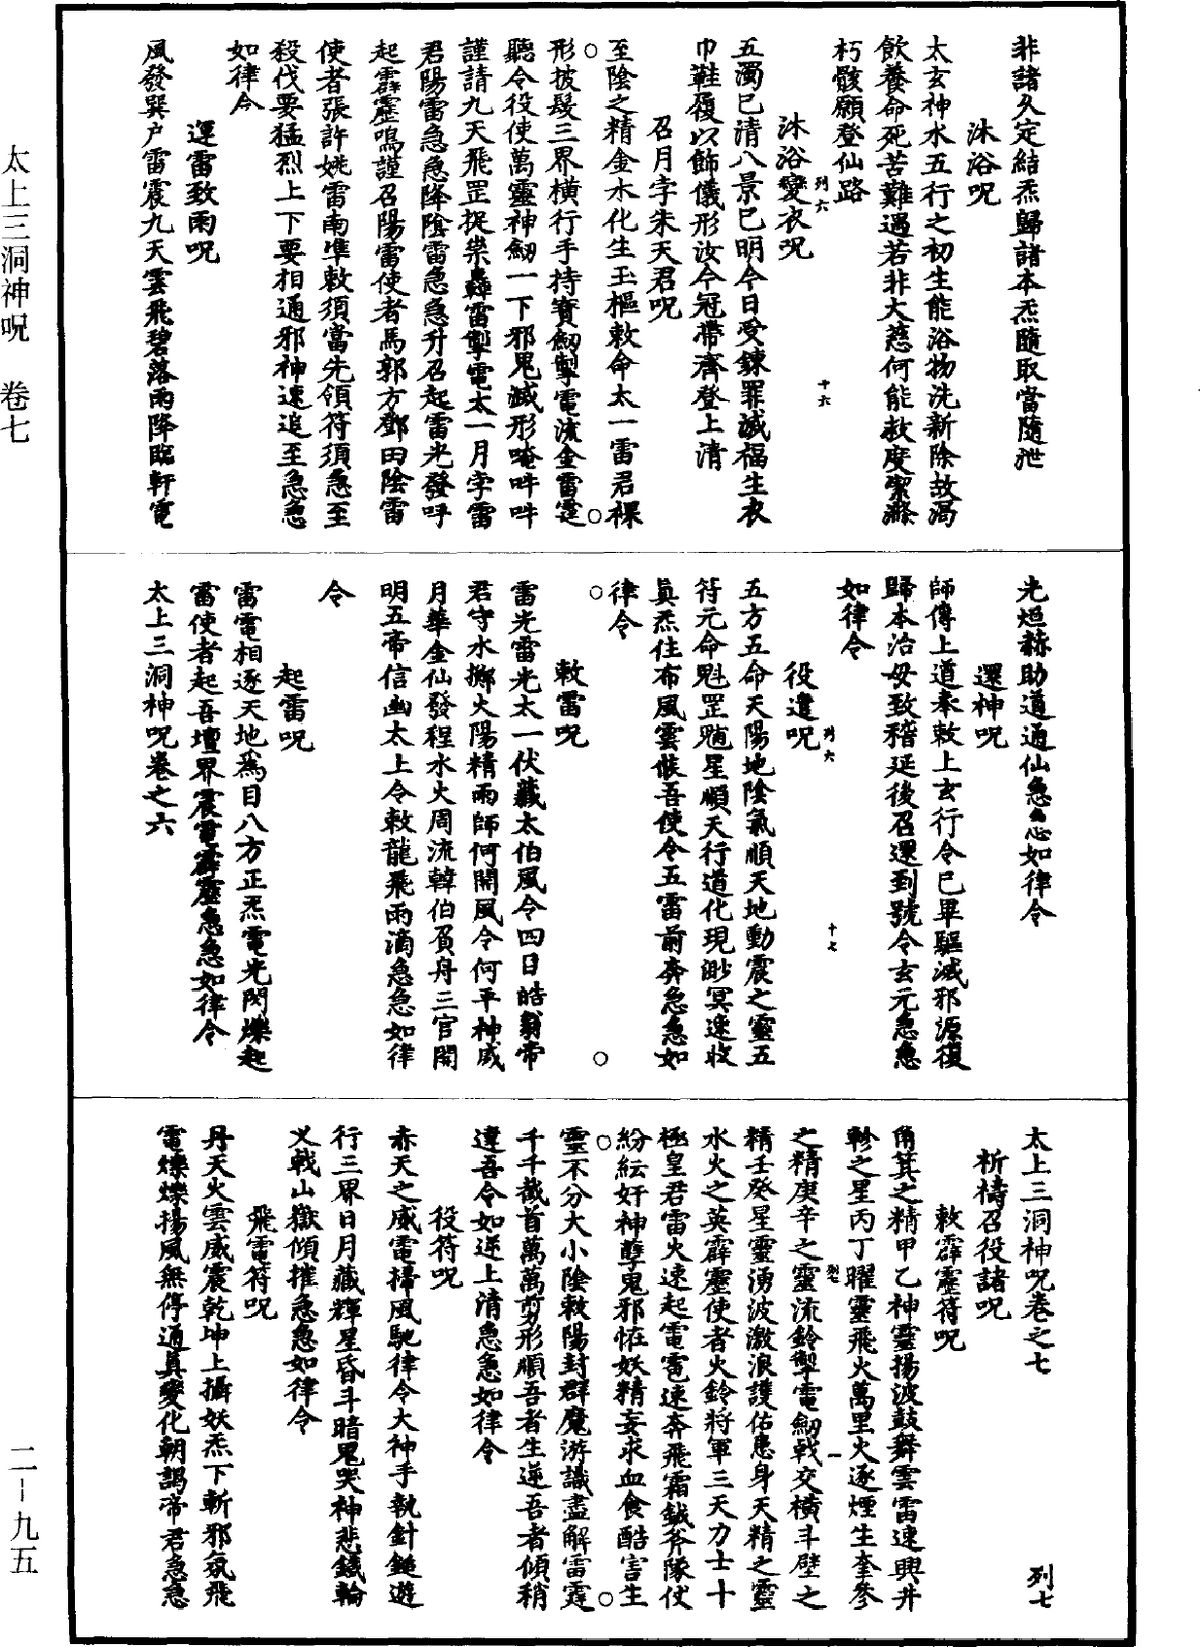 非諸久定結炁歸諸本炁隨取當隨泄
沐浴呪
太玄神水五行之初生能浴物洗新除故渴
飲養命死苦難遇若非大慈何能救度潔滌
朽骸願登仙路
列六
十六
沐浴變衣呪
五濁已清八景已明今日受鍊罪滅福生衣
巾鞋履以飾儀形汝今冠帶齊登上清
召月孛朱天君呪
至陰之精金木化生玉樞敕命太一雷君裸
形披髮三界橫行手持寶劒掣電流金雷霆
聽令役使萬靈神劒一下邪鬼滅形唵吽吽
謹請九天飛罡捉祟轟雷掣電太一月孛雷
君陽雷急急降陰雷急急升召起雷光發呼
起霹靂鳴謹召陽雷使者馬郭方鄧田陰雷
使者張許姚雷南準敕須當先領符須急至
殺伐要猛烈上下要相通邪神速追至急急
如律令
運雷致雨呪
風發巽户雷震九天雲飛碧落雨降臨軒電
光烜赫助道通仙急急如律令
還神呪
師傳上道奉敕上玄行令已畢驅滅邪源復
歸本治毋致稽延後召還到號令玄元急急
如律令
列六
十七
役遣呪
五方五命天陽地陰氣順天地動震之靈五
符元命魁罡魒星順天行道化現眇冥速收
眞炁住布風雲倀吾使令五雷前奔急急如
律令
敕雷呪
雷光雷光太一伏藏太伯風令四日皓翁帝
君守水擲火陽精雨師何開風令何平神威
月華金仙發程水火周流韓伯負舟三官開
明五帝信幽太上令敕龍飛雨滴急急如律
令
起雷呪
雷電相逐天地爲目八方正炁電光閃爍起
雷使者起吾壇界震電霹靂急急如律令
太上三洞神呪卷之六
太上三洞神呪卷之七
列七
祈禱召役諸呪
敕霹靂符呪
角箕之精甲乙神靈揚波鼓舞雲雷速興井
軫之星丙丁曜靈飛火萬里火逐煙生奎參
之精庚辛之靈流鈴掣電劒戟交橫斗壁之
列七
一
精壬癸星靈湧波激浪護佑患身天精之靈
水火之英霹靂使者火鈴將軍三天力士十
極皇君雷火速起電電速奔飛霜鉞斧隊仗
紛紜奸神孽鬼邪怪妖精妄求血食酷害生
靈不分大小陰敕陽封群魔游識盡解雷霆
千千截首萬萬剪形順吾者生逆吾者傾稍
違吾令如逆上清急急如律令
役符呪
赤天之威電掃風馳律令大神手執針鎚遊
行三界日月藏輝星昏斗暗鬼哭神悲鐵輪
乂戟山嶽傾摧急急如律令
飛雷符呪
丹天火雲威震乾坤上攝妖炁下斬邪氛飛
電爍爍揚風無停通眞變化朝謁帝君急急
太上三洞神呪 卷七
二-九五